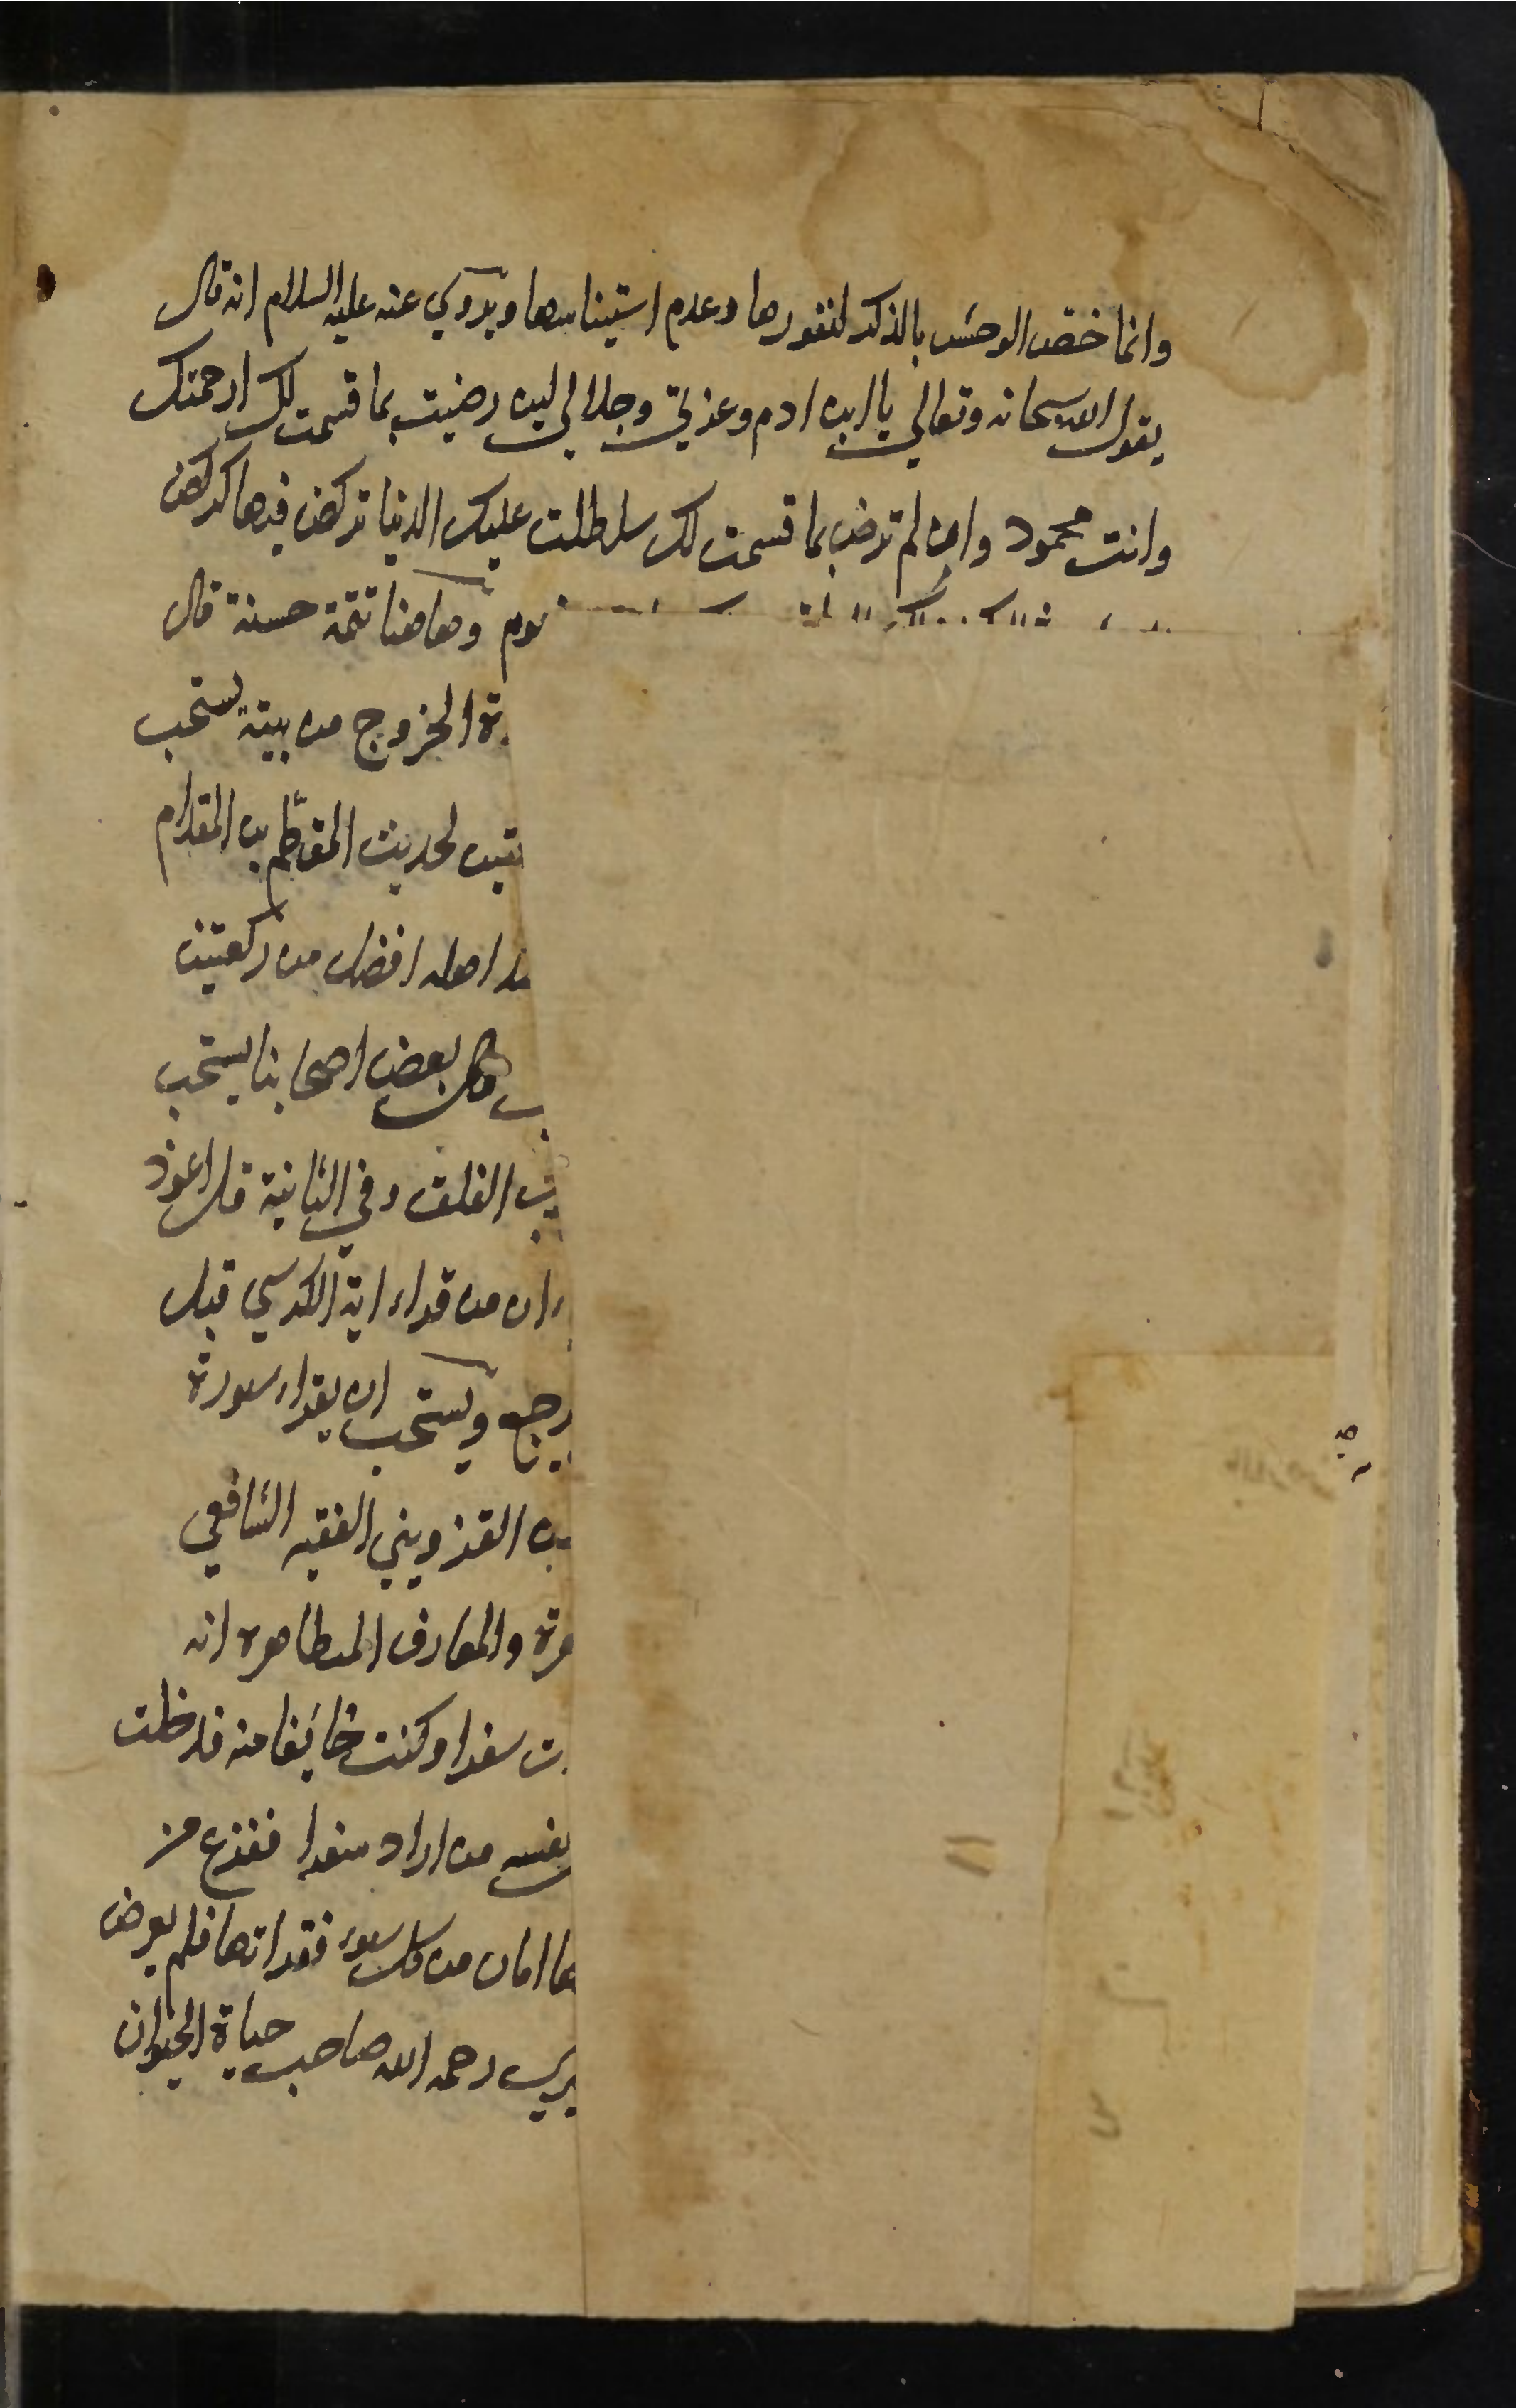 وانما خص الوحش بالذكر لنفورها وعدم استيناسها ويروي عنه عليه السلام انه قال
يقول الله سبحانه وتعالي يا ابن ادم وعزتي وجلالي لين رضيت بما قسمت لك ارحمتك
وانت محمود وان لم ترض بما قسمت لك سلطلت عليك الدنيا تركض فيها كركض
وهاهنا تتمة حسنة قال
الخروج من بيته يستحب
لحديث المقطم بن المقدام
اهله افضل من ركعتين
قال بعض اصحابنا يستحب
الفلق وفي الثانية قل اعوذ
ان من قراء اية الكرسي قبل
يرجع ويستحب ان يقراء سورة
القزويني الفقيه الشافعي
والمعارف المتظاهرة انه
سفرا وكنت خائفا منه فدخلت
نفسه من اراد سفرا ففزع من
امان من كل سوء فقراتها فلم يعرض
رحمه الله صاحب حياة الحيوان